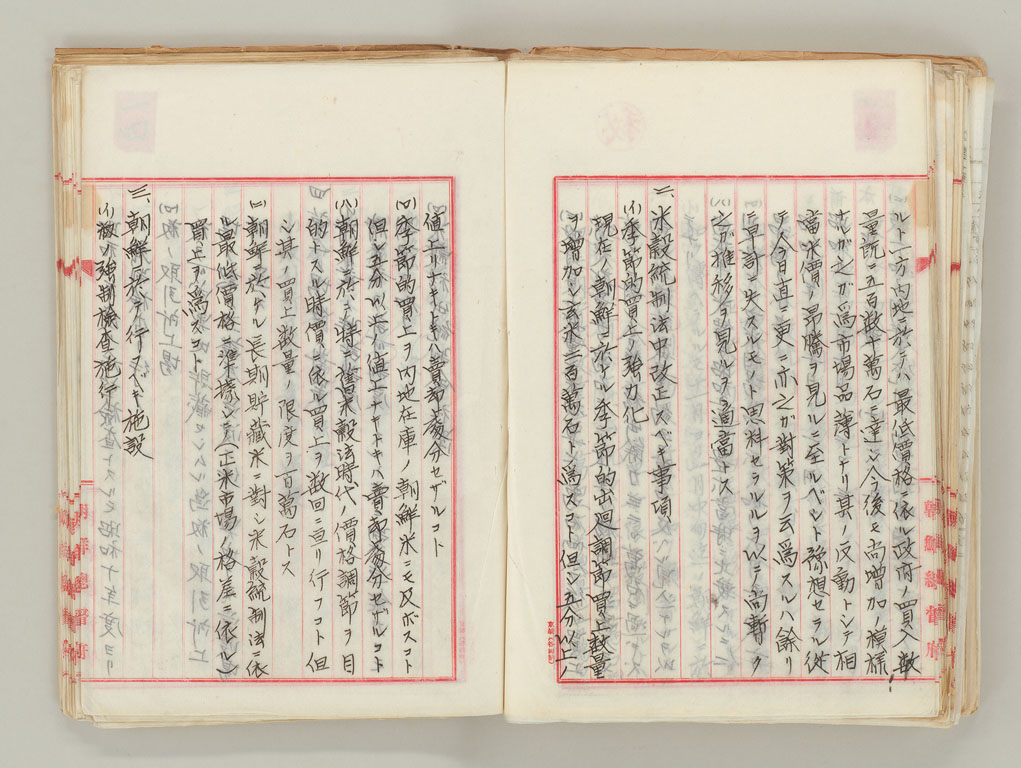 ルト一方内地ニ於テハ最低價格ニ依ル政府ノ買入数
量既ニ五百数十萬石ニ達シ今後モ尚増加ノ模様
ナルガ之ガ為市場品薄トナリ其ノ反動トシテ相
當米價ノ昂騰ヲ見ルニ至ルベシト豫想セラル從
テ今日直ニ更ニ亦之ガ對策ヲ云為スルハ餘リ
ニ早計ニ失スルモノト思料セラルルヲ以テ尚暫ク
之ガ推移ヲ見ルヲ適當トス
二、米穀統制法中改正スベキ事項
(イ)季節的買上ノ強力化
現在ノ朝鮮ニ於ケル季節的出廻調節買上数量
ヲ増加シ玄米三百萬石ト為スコト但シ五分以上ノ
値上リナキトキハ賣却處分セザルコト
(ロ)季節的買上ヲ内地在庫ノ朝鮮米ニモ及ボスコト
但シ五分以上ノ値上ナキトキハ賣却處分セザルコト
(ハ)朝鮮ニ於テ特ニ舊米穀法時代ノ價格調節ヲ目
的トスル時價ニ依ル買上ヲ数回ニ亘リ行フコト但
シ其ノ買上数量ノ限度ヲ百萬石トス
(ニ)朝鮮ニ於ケル長期貯藏米ニ對シ米穀統制法ニ依
ル最低價格ニ準據シ(正米市場ノ格差ニ依ル)
買上ヲ為スコト
三、朝鮮ニ於テ行フベキ施設
(イ)籾ノ強制檢査施行
朝鮮總督府
朝鮮總督府